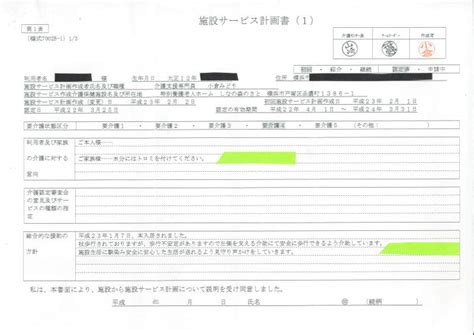 第1表
施設サービス計画書(1)
(様式7002B-1) 1/3
作成者
初回 ・ 紹介 ・ 継続
申請中
利用者名
様
生年月日
大正12年
住所 横浜市
施設サービス計画作成者氏名及び職種 介護支援専門員 小倉みどり
施設サービス計画作成介護保険施設名及び所在地 特別養護老人ホーム しなの森のさと 横浜市戸塚区品濃町1386-1
施設サービス計画作成(変更)日 平成23年2月2日
初回施設サービス計画作成日 平成23年2月1日
認定日 平成23年2月
認定の有効期間
平成24年3月31日
要介護状態区分
要介護1 ・ 要介護2 ・ 要介護3 ・ 要介護4 ・ 要介護5 (その他: )
利用者及び家族の介護に対する意向
ご本人様…
ご家族様…水分にはトロミを付けてください。
介護認定審査会の意見及びサービスの種類の指定
総合的な援助の方針
平成23年1月7日、本入居されました。
杖歩行されておりますが、歩行不安定がありますので左側を支える介助にて安全に歩行できるよう介助しています。
施設生活に馴染み安全に安心した生活が送れるよう見守り声かけをしていきます。
私は、本書面により、施設から施設サービス計画について説明を受け同意しました。
平成 年 月 日 氏名 ㊞ (続柄 )